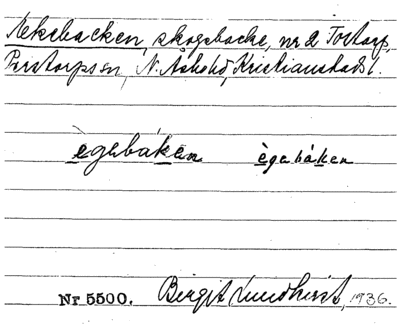 Aekebacken, skogsbacke, nr 2 Torstorp,
Perstorps sn, N. Åsbo hd, Kristianstads l.
ègəbákən ègabáken
Nr 5500. Birgit Lundkvist, 1936.